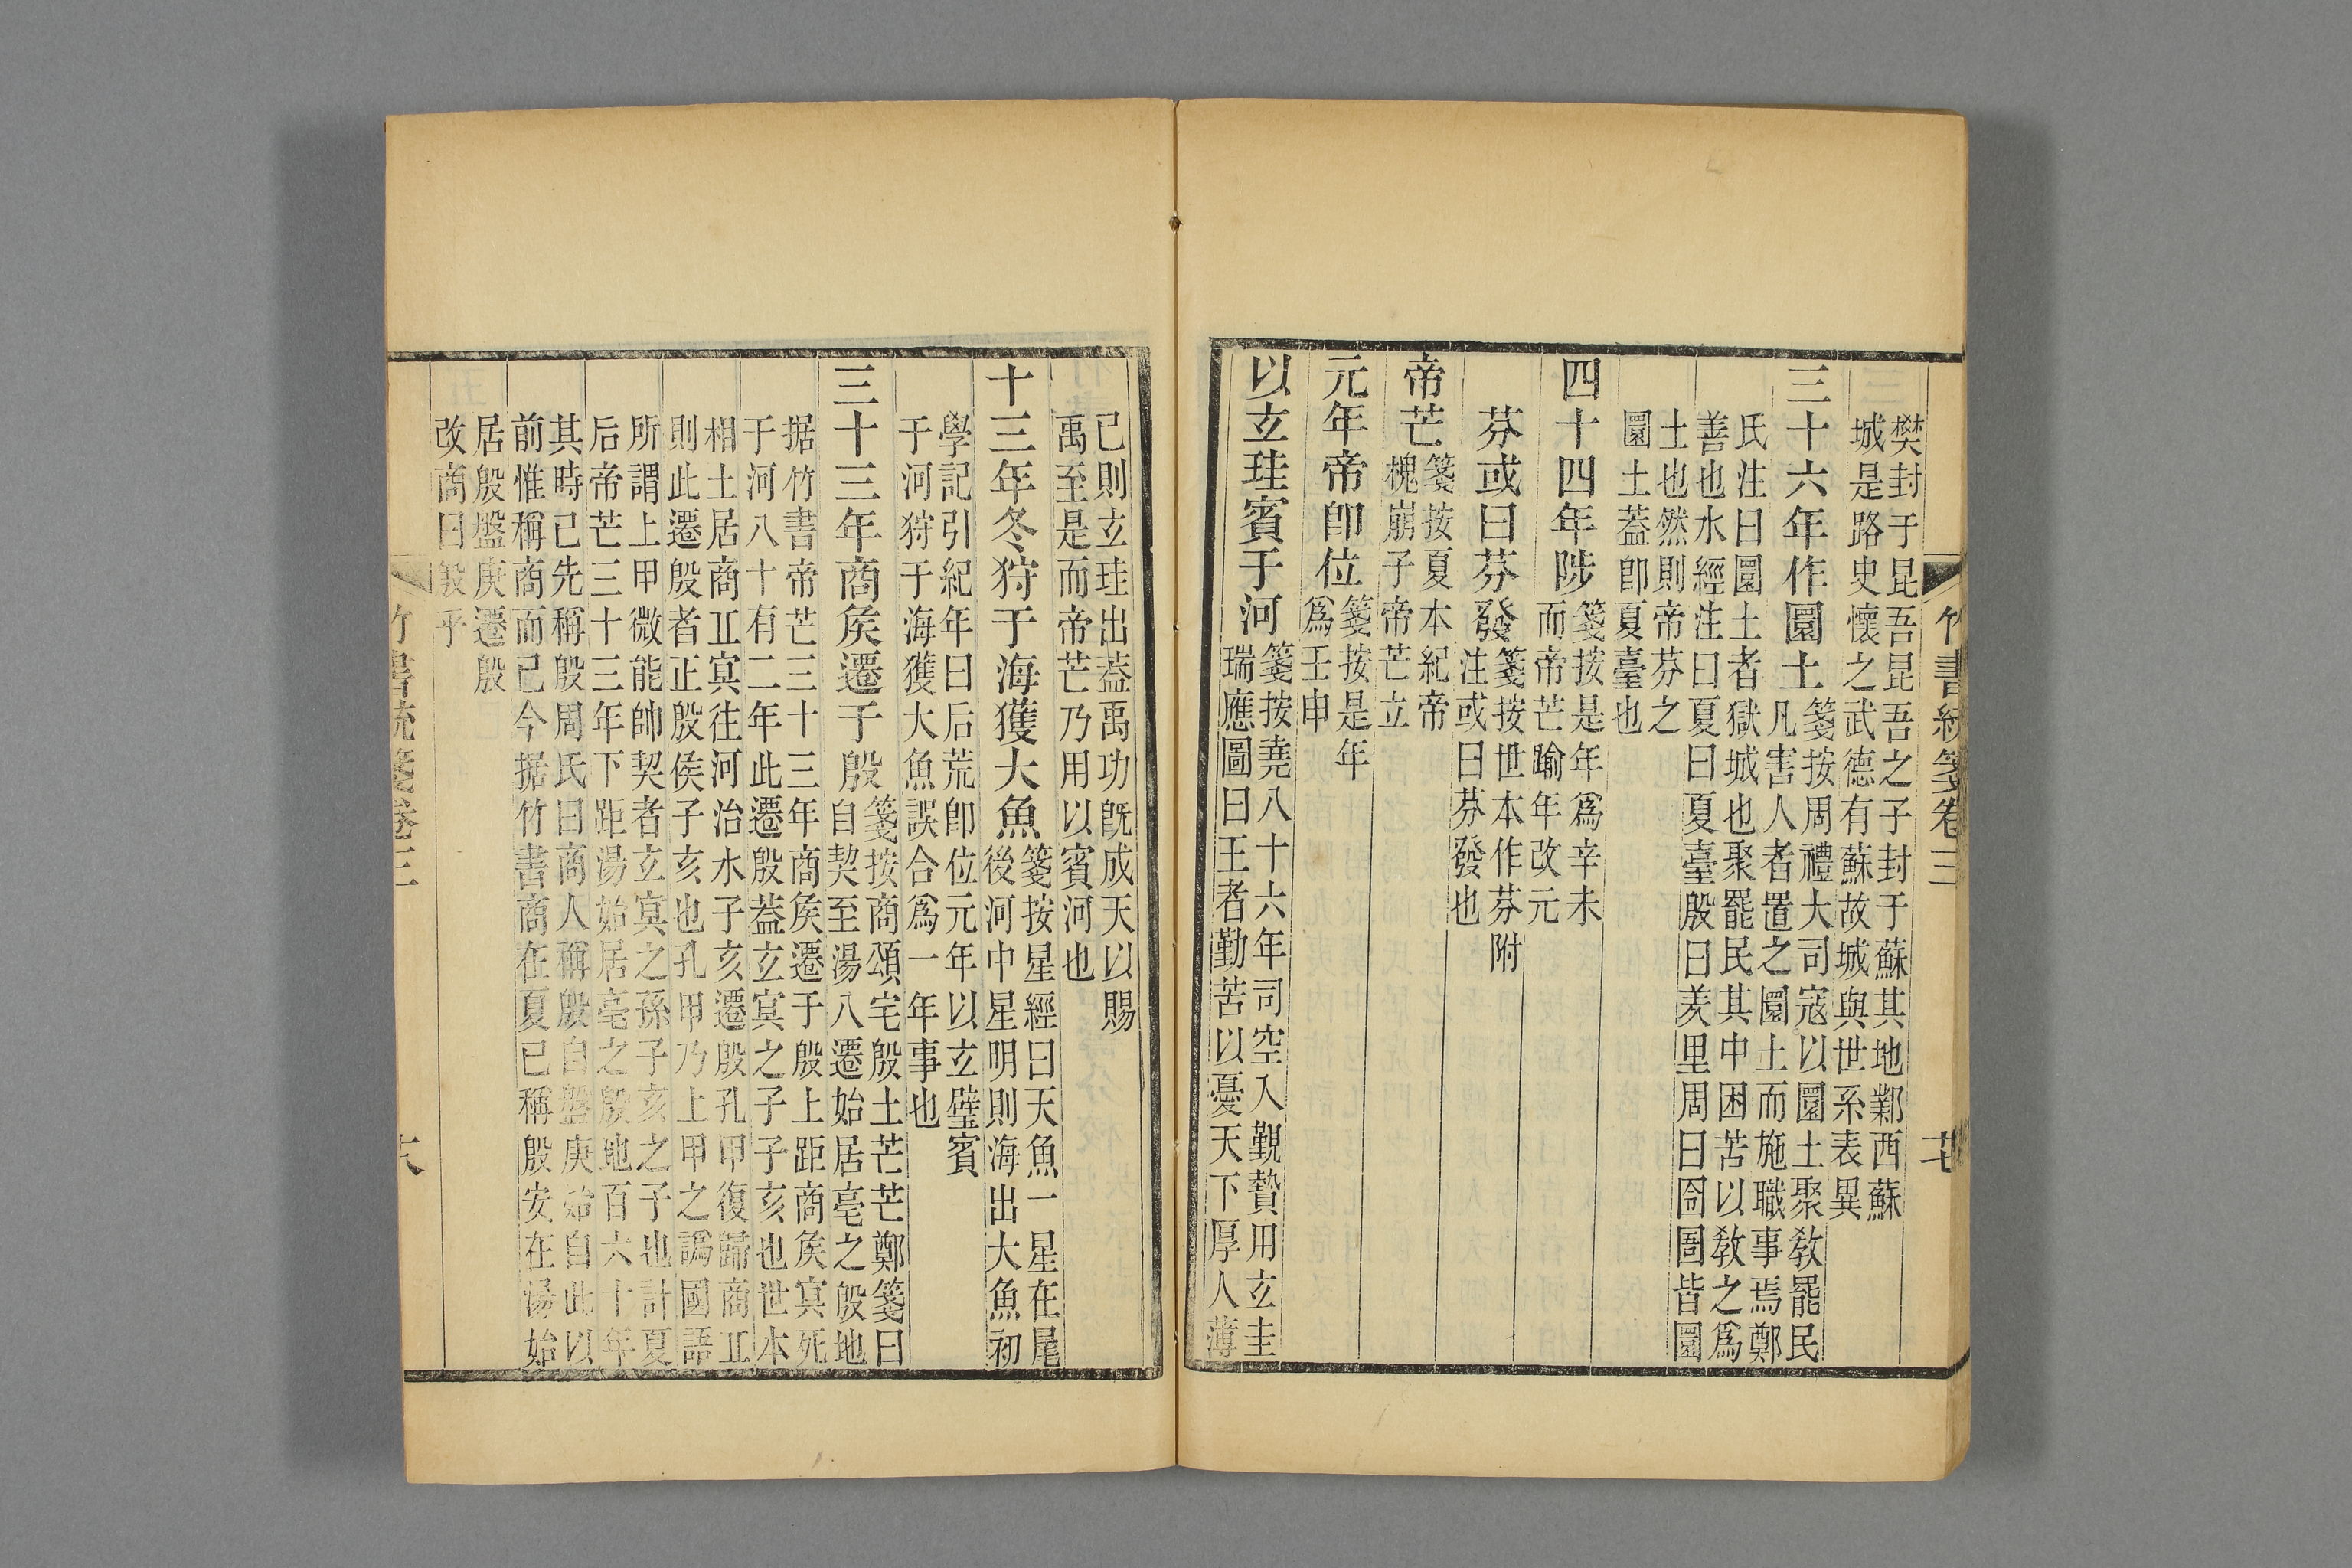 竹書統箋卷三
十七
樊封于昆吾昆吾之子封于蘇其地鄴西蘇
城是路史懷之武德有蘇故城與世系表異
三十六年作圜土
箋按周禮大司寇以圜土聚教罷民
凡害人者置之圜土而施職事焉鄭
氏注曰圜土者獄城也聚罷民其中困苦以教之爲
善也水經注曰夏曰夏臺殷曰羑里周曰囹圄皆圜
土也然則帝芬之
圜土蓋即夏臺也
四十四年陟
箋按是年爲辛未
而帝芒踰年改元
芬或曰芬發
箋按世本作芬附
注或曰芬發也
帝芒
箋按夏本紀帝
槐崩子帝芒立
元年帝卽位
箋按是年
爲壬申
以玄珪賓于河
箋按堯八十六年司空入覲贄用玄圭
瑞應圖曰王者勤苦以憂天下厚人薄
己則玄珪出蓋禹功旣成天以賜
禹至是而帝芒乃用以賓河也
十三年冬狩于海獲大魚
箋按星經曰天魚一星在尾
後河中星明則海出大魚初
學記引紀年曰后荒卽位元年以玄璧賓
于河狩于海獲大魚誤合爲一年事也
三十三年商矦遷于殷
箋按商頌宅殷土芒芒鄭箋曰
自契至湯八遷始居亳之殷地
据竹書帝芒三十三年商矦遷于殷上距商矦冥死
于河八十有二年此遷殷蓋玄冥之子子亥也世本
相土居商丘冥往河治水子亥遷殷孔甲復歸商丘
則此遷殷者正殷侯子亥也孔甲乃上甲之譌國語
所謂上甲微能帥契者玄冥之孫子亥之子也計夏
后帝芒三十三年下距湯始居亳之殷地百六十年
其時已先稱殷周氏曰商人稱殷自盤庚始自此以
前惟稱商而已今据竹書商在夏已稱殷安在湯始
居殷盤庚遷殷
改商曰殷乎
竹書統箋卷三
大